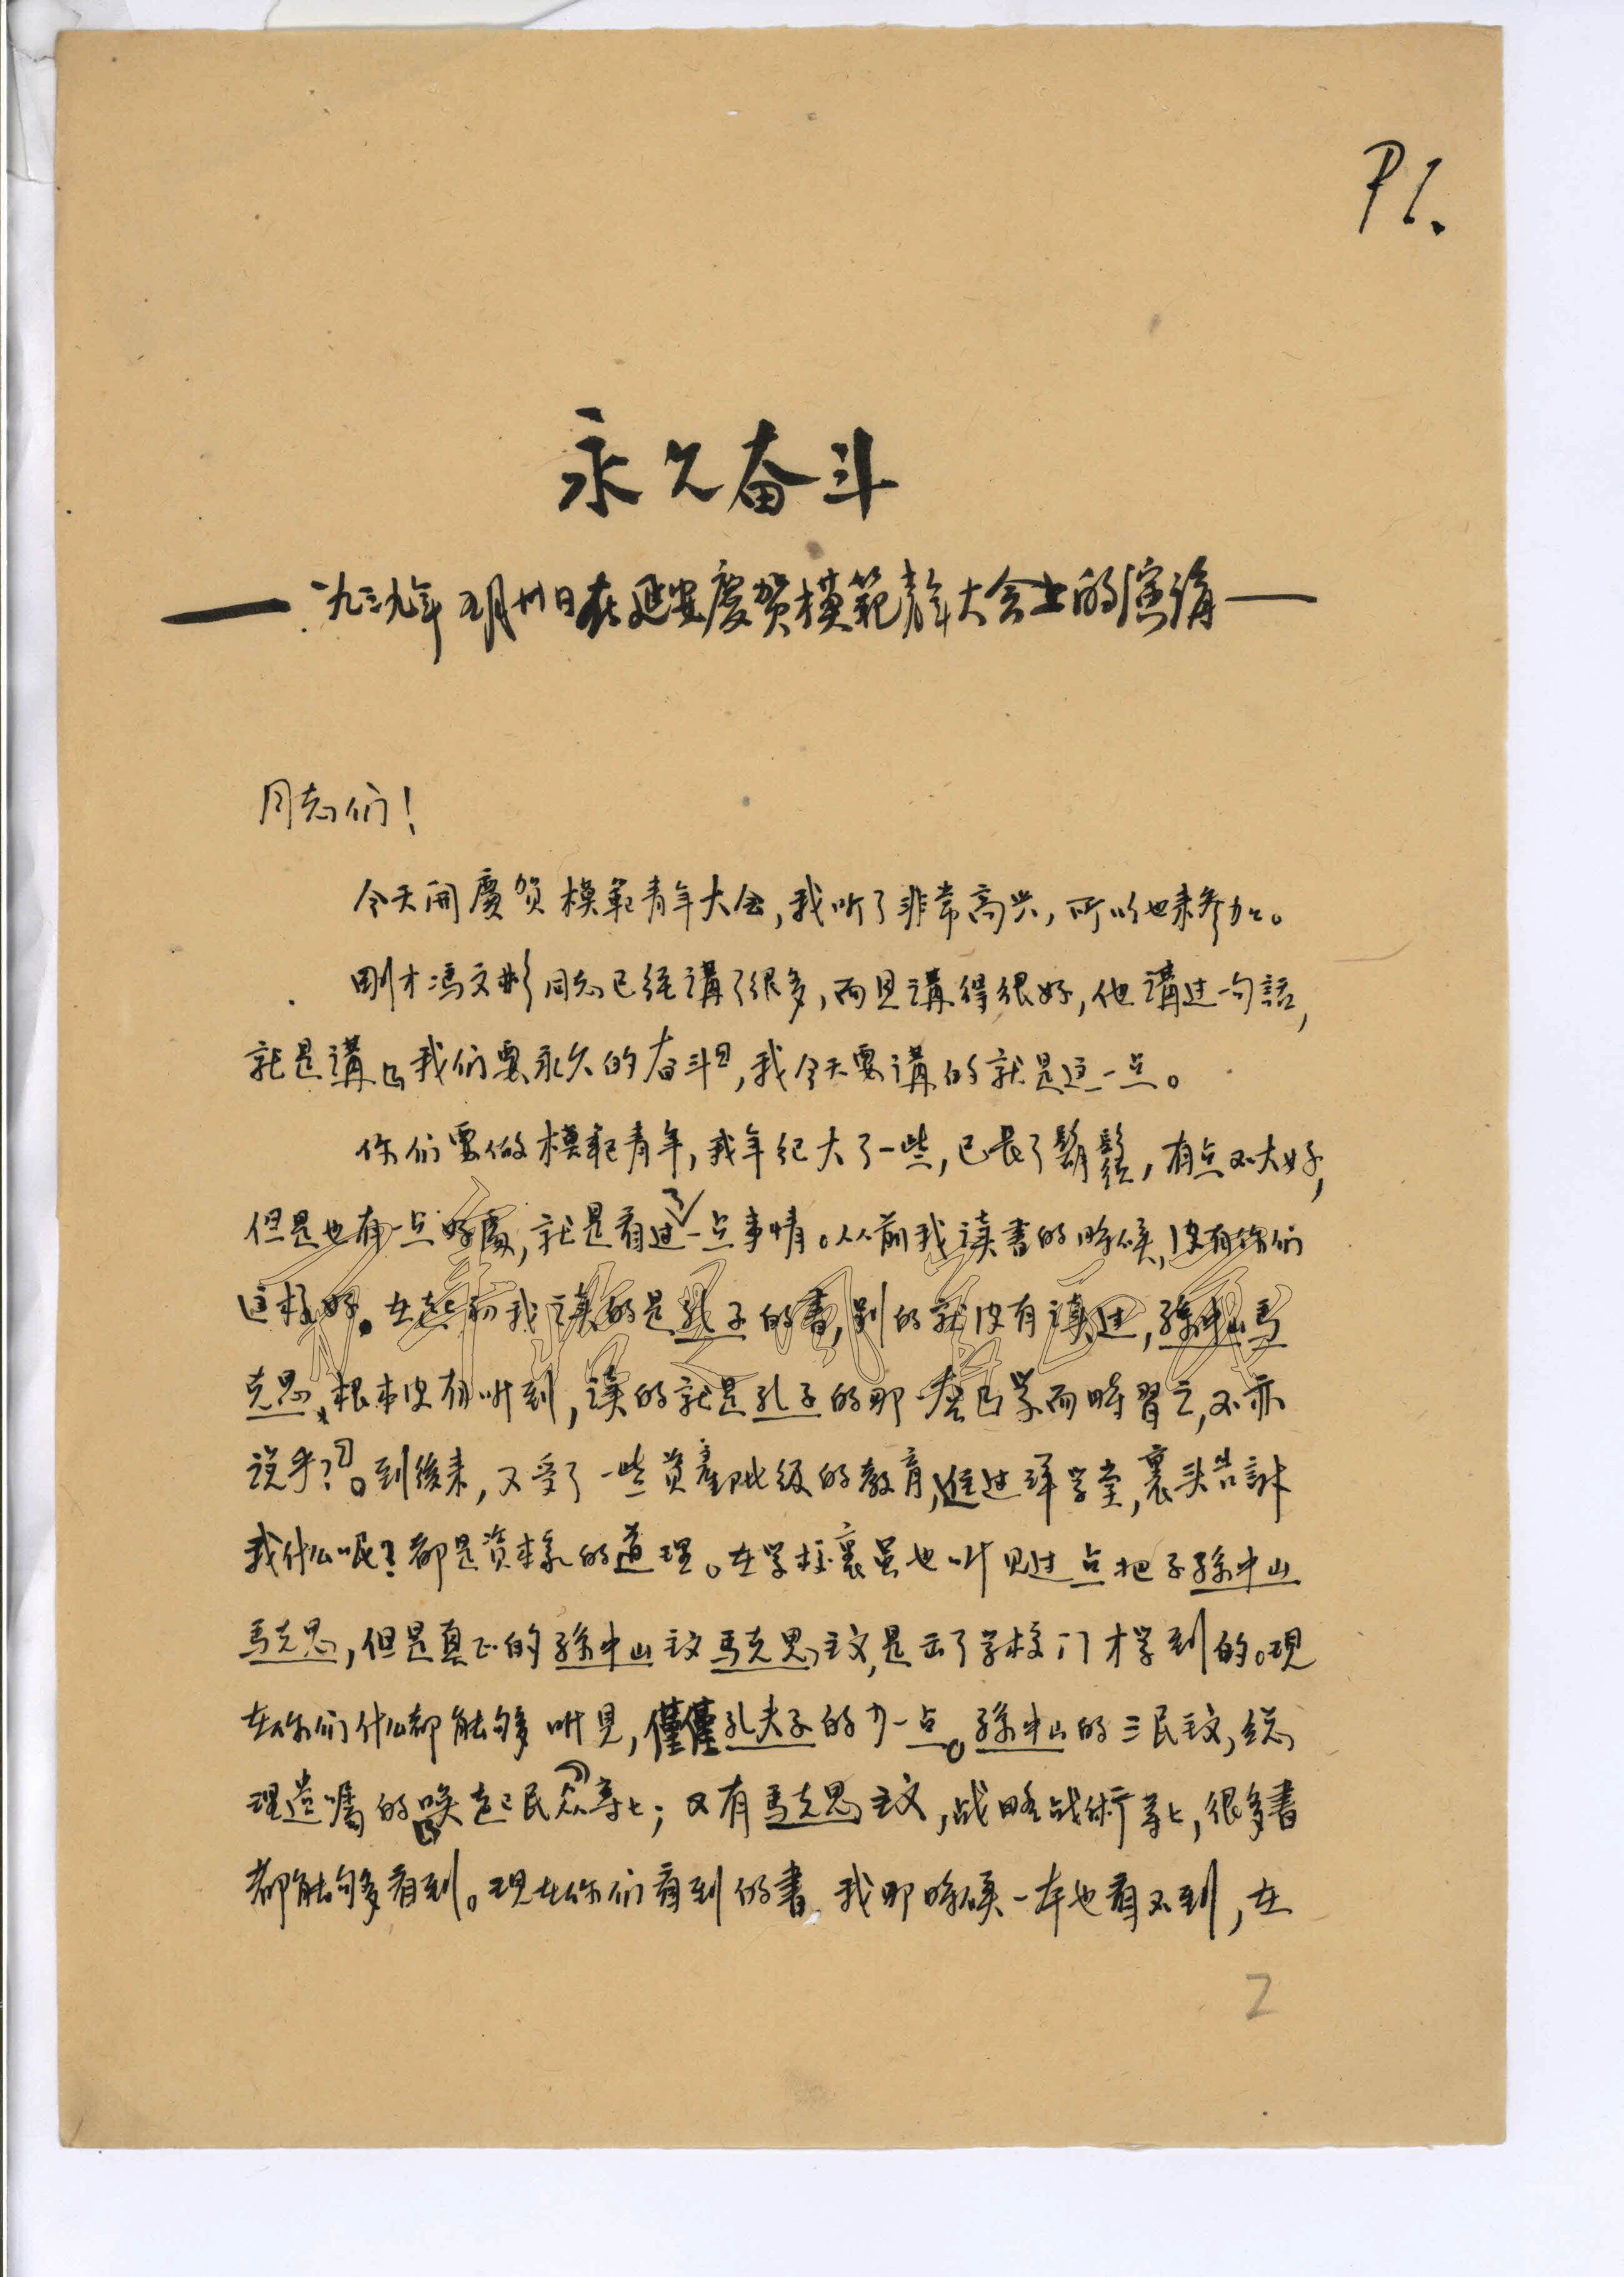 P1.
永久奋斗
——一九三九年五月卅日在延安慶贺模範青年大会上的演講——
同志们！
今天開慶贺模範青年大会，我听了非常高兴，所以也来参加。
剛才馮文彬同志已经講了很多，而且講得很好，他講过一句話，
就是講「我们要永久的奋斗」，我今天要講的就是这一点。
你们要做模範青年，我年纪大了一些，已長了鬍鬚，有点不大好，
但是也有一点好處，就是看过了一点事情。从前我读書的時候，没有你们
这样好。在起初我读的是孔子的書，别的就没有读过，孫中山馬
克思，根本没有听到，读的就是孔子的那一套「学而時習之，不亦
说乎？」。到後来，又受了一些資產阶级的教育，進过洋学堂，裏头告訴
我什么呢？都是資本家的道理。在学校裏虽也听见过点把子孫中山
馬克思，但是真正的孫中山主义馬克思主义，是出了学校门才学到的。現
在你们什么都能够听見，僅僅孔夫子的少一点。孫中山的三民主义，総
理遗嘱的「唤起民众」等等；又有馬克思主义，战略战術等等，很多書
都能够看到。現在你们看到的書，我那時候一本也看不到，在
2